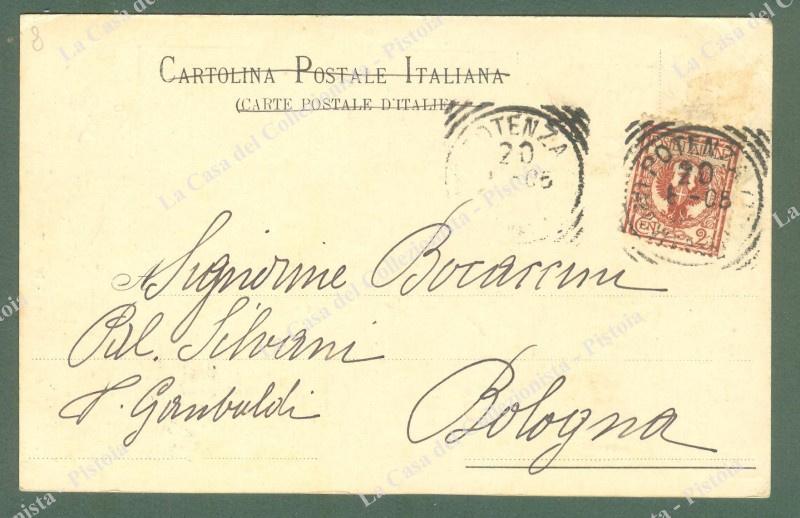 8
CARTOLINA POSTALE ITALIANA
(CARTE POSTALE D'ITALIE)
POTENZA
20
-05
POTENZA
20
-05
CENT. 2
A Signorine Bocaccini
Pal. Silvani
V. Garibaldi
Bologna
La Casa del Collezionista - Pistoia